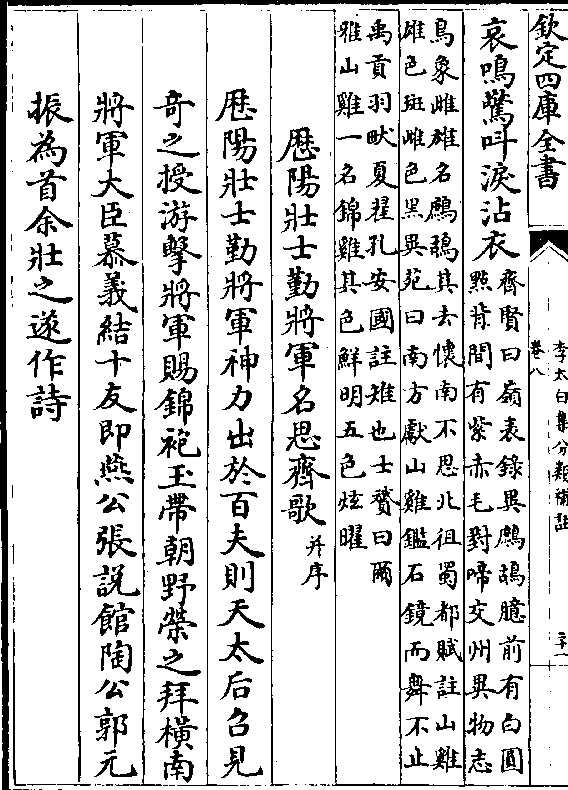 欽定四庫全書
李太白集分類補註
卷八
哀鳴驚叫淚沾衣
齊賢曰嶺表錄異鷓鴣臆前有白圓
點背間有紫赤毛對啼交州異物志
鳥象雌雄名鷓鴣其去懷南不思北徂蜀都賦註山雞
雄色斑雌色黑異苑曰南方獻山雞鑑石鏡而舞不止
禹貢羽畎夏翟孔安國註雉也士贇曰爾
雅山雞一名錦雞其色鮮明五色炫曜
歴陽壯士勤將軍名思齊歌并序
歴陽壯士勤將軍神力出於百夫則天太后召見
奇之授游擊將軍賜錦袍玉帶朝野榮之拜橫南
將軍大臣慕義結十友即燕公張説館陶公郭元
振為首余壯之遂作詩